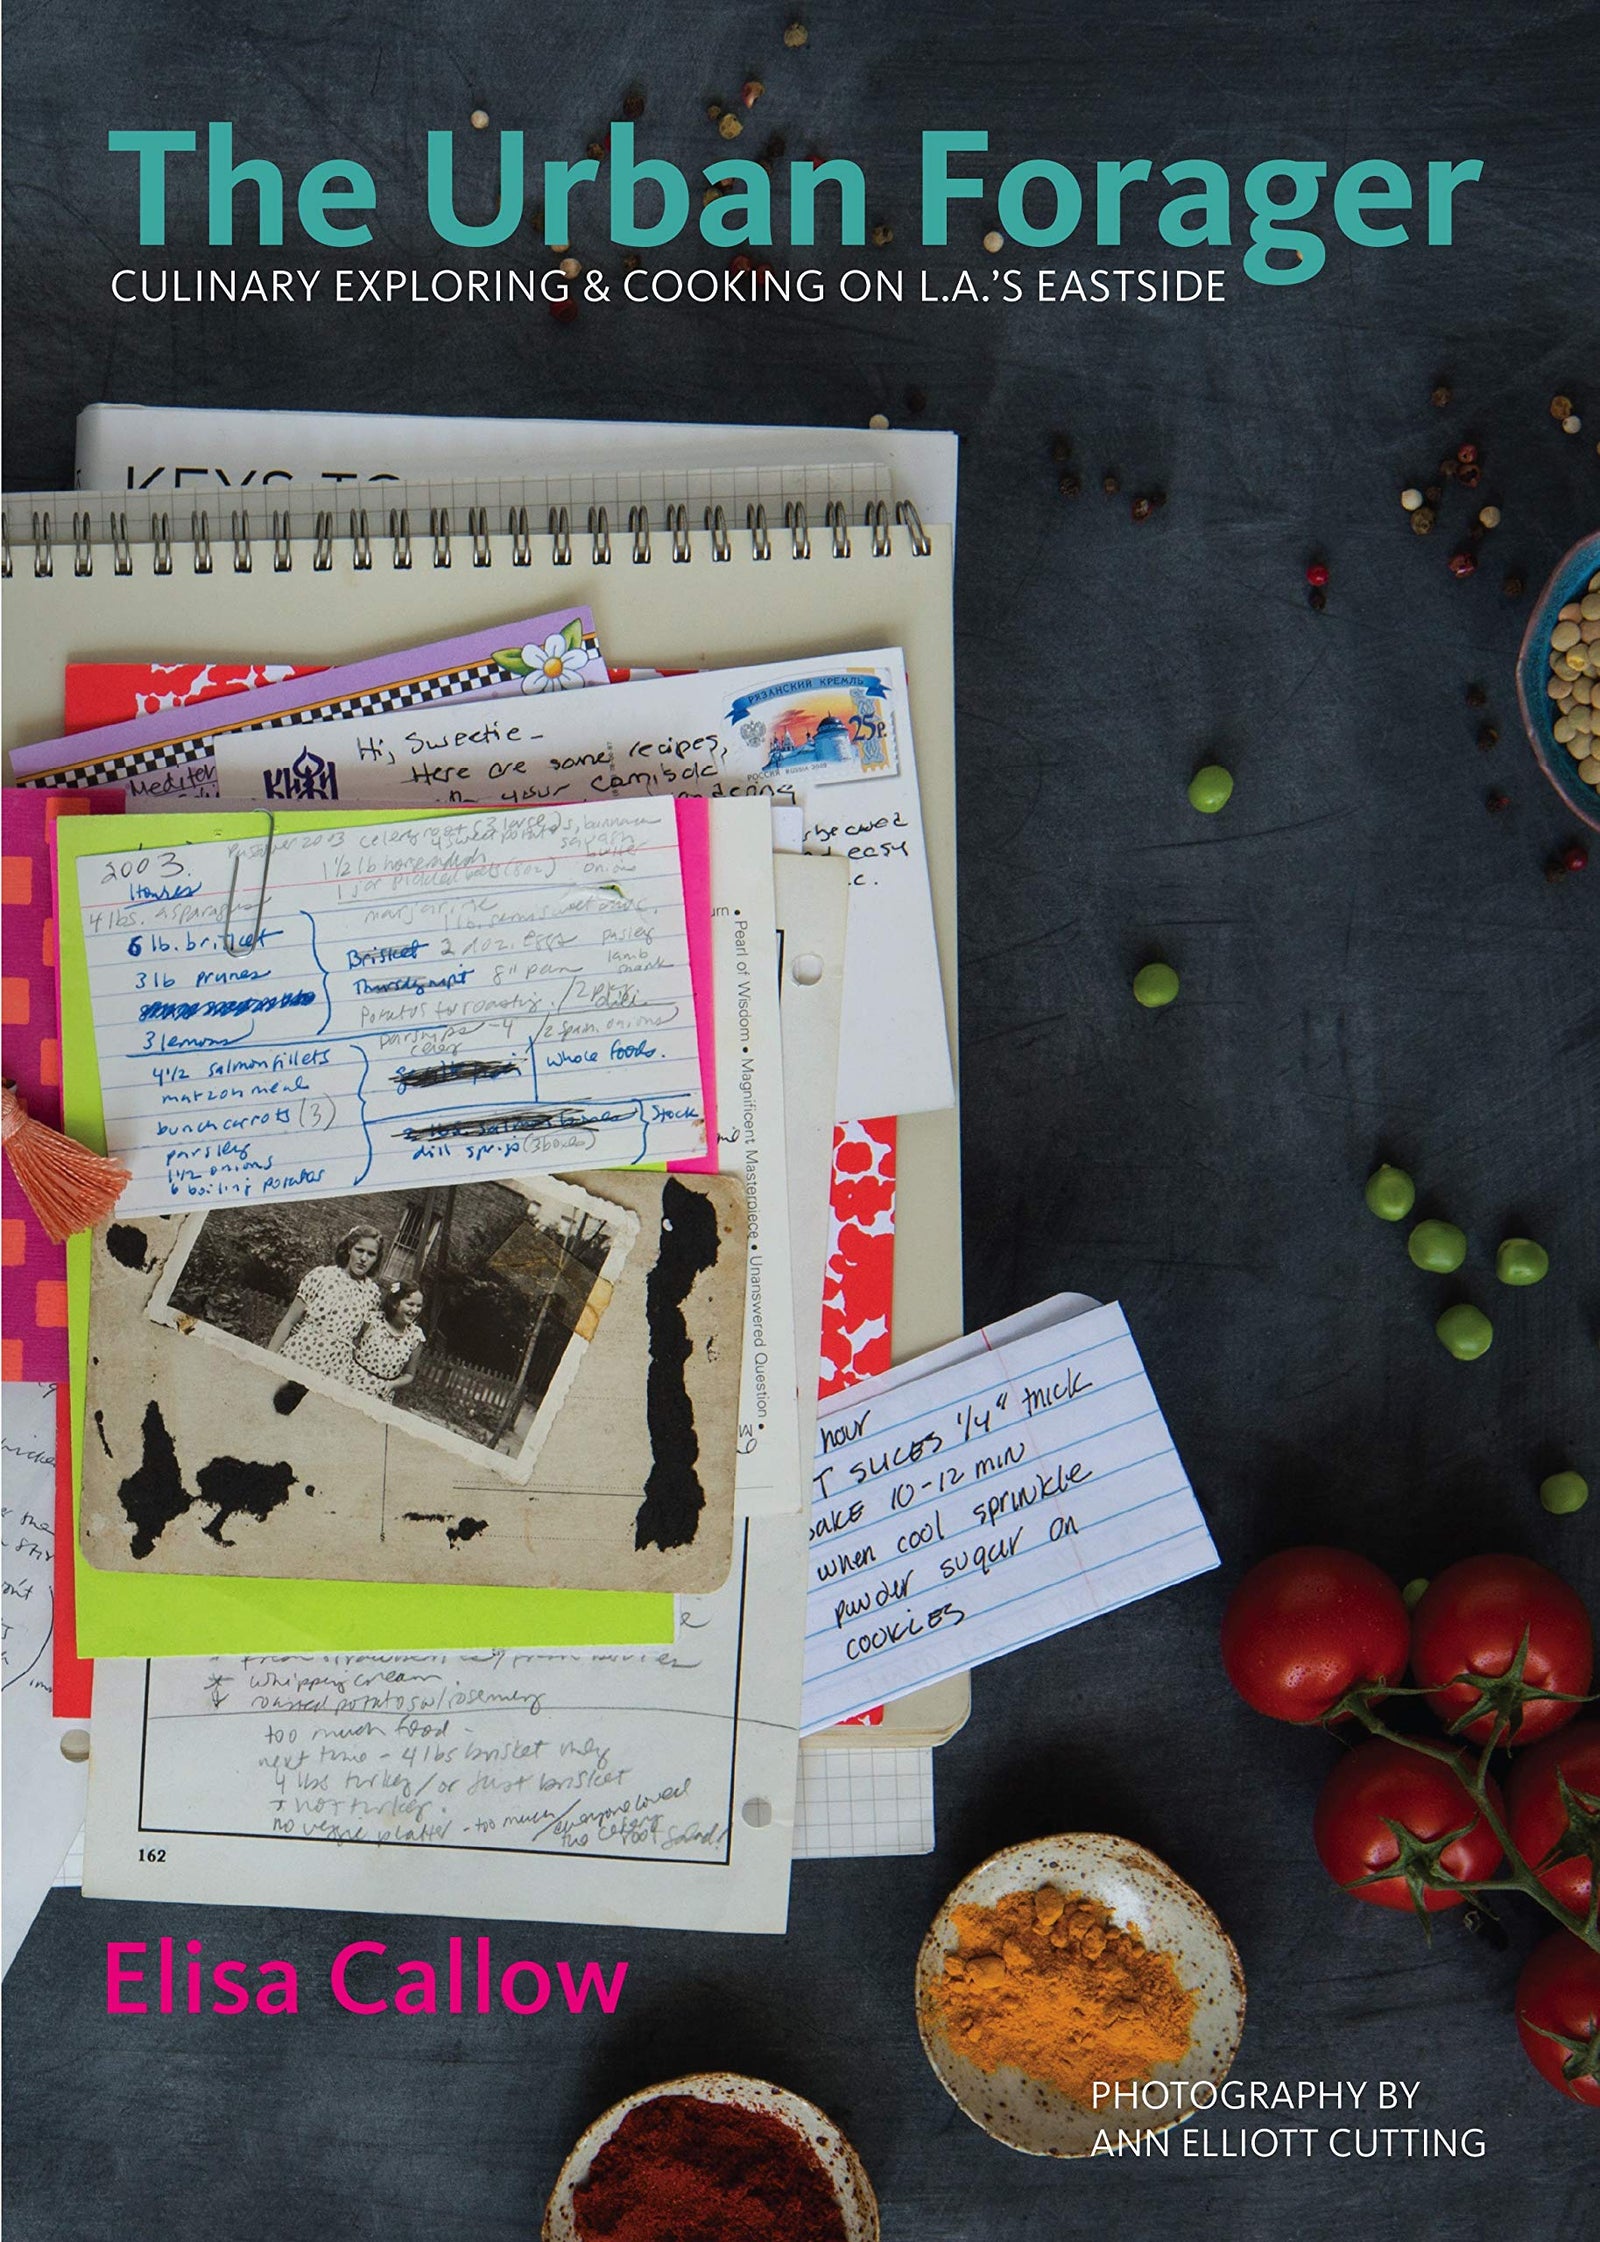 The Urban Forager
CULINARY EXPLORING & COOKING ON L.A.'S EASTSIDE
KEYS TO
РЯЗАНСКИЙ КРЕМЛЬ
25р
РОССИЯ RUSSIA 2009
Hi, Sweetie –
Here are some recipes,
your camisole
Mediter
КИЖИ
easy
2003.
Passover 2003 celery root (3 large)
4 sweet potatoes, butternut
squash
1 1/2 lb horseradish
onions
1 jar pickled beets (8oz)
4 lbs. asparagus
margarine
1 lb. semisweet choc.
6 lb. brisket
Brisket 2 doz. eggs parsley
3 lb prunes
8" pan lamb
shank
potatoes for roasting
2 pkg.
dill
3 lemons
parsnips – 4
2 Spam. onions
celery
4 1/2 salmon fillets
whole foods.
matzoh meal
bunch carrots (3)
Stock
parsley
dill sprigs (3 boxes)
1 1/2 onions
6 boiling potatoes
urn • Pearl of Wisdom • Magnificent Masterpiece • Unanswered Question •
hour
T SLICES 1/4" thick
BAKE 10-12 min
when cool sprinkle
powder sugar on
cookies
whipping cream
roasted potatoes w/rosemary
too much food –
next time – 4 lbs brisket only
4 lbs turkey/or just brisket
+ not turkey.
no veggie platter – too much/everyone loved
the celery
root salad!
162
Elisa Callow
PHOTOGRAPHY BY
ANN ELLIOTT CUTTING